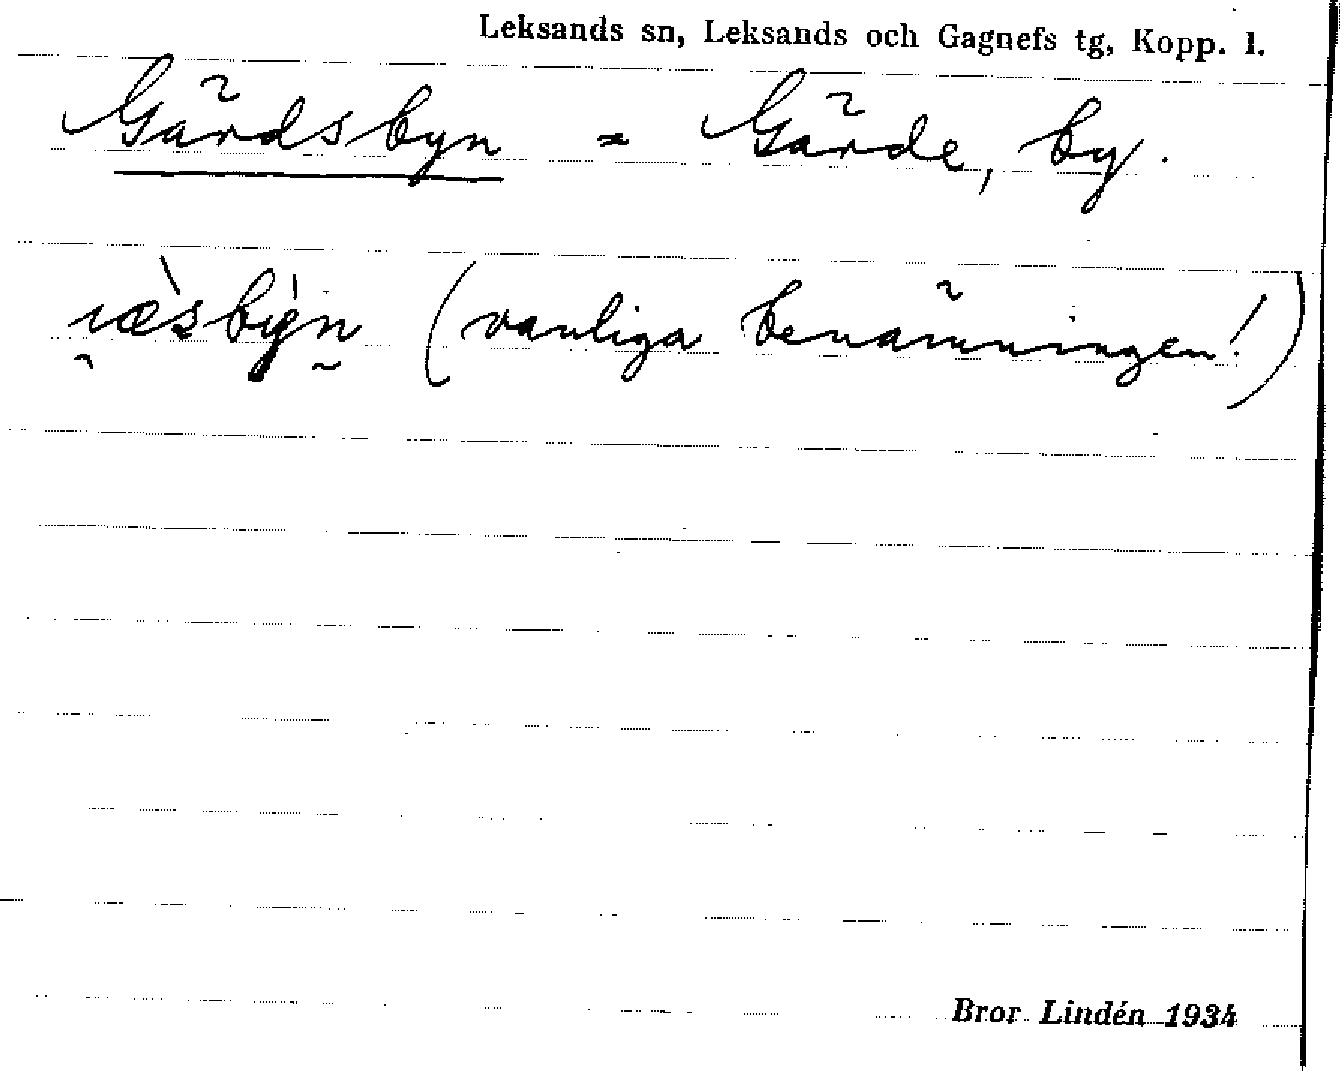 Leksands sn, Leksands och Gagnefs tg, Kopp. l.
Gärdsbyn = Gärde, by.
(vanliga benämningen!)
Bror Lindén 1934